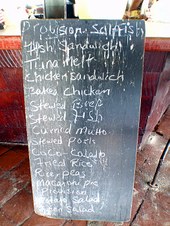 Provision Saltfish
Fish Sandwich
Tuna melt
Chicken Sandwich
Baked Chicken
Stewed Beef
Stewed Fish
Curried mutto
Stewed Pork
Coco Calalo
Fried Rice
Rice peas
macaroni pie
Provision
Potato Salad
Green Salad